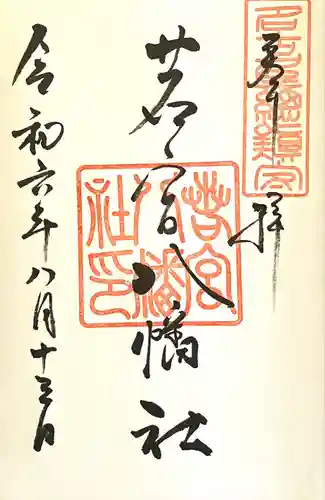 奉拝
若宮八幡社
若宮
八幡
社印
令和六年八月十三日